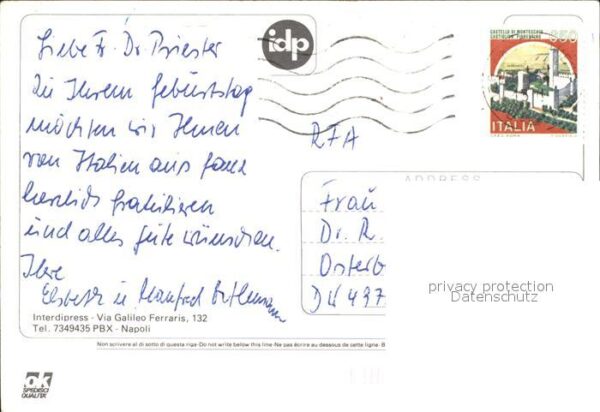 Liebe Fr. Dr. Priester
Zu Ihrem Geburtstag
möchten wir Ihnen
von Italien aus ganz
herzlich gratulieren
und alles Gute wünschen.
Ihre
Elsbeth u. Manfred
Interdipress - Via Galileo Ferraris, 132
Tel. 7349435 PBX - Napoli
Non scrivere al di sotto di questa riga-Do not write below this line-Ne pas écrire au dessous de cette ligne-B
ok
SPEDISCI
QUALITA'
idp
CASTELLO DI MONTECCHIO
CASTIGLION FIORENTINO
850
ITALIA
RFA
ADDRESS
Frau
Dr. R.
Osterb
privacy protection
Datenschutz